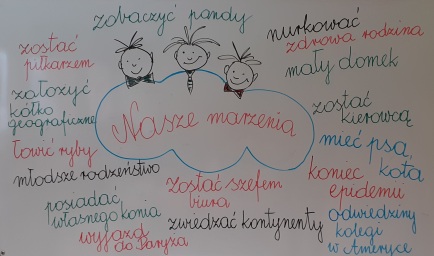 zobaczyć pandy
nurkować
zdrowa rodzina
mały domek
zostać
piłkarzem
założyć
kółko
geograficzne
łowić ryby
młodsze rodzeństwo
Nasze marzenia
zostać
kierowcą
mieć psa,
kota
koniec
epidemii
zostać szefem
biura
posiadać
własnego konia
zwiedzać kontynenty
wyjazd
do Paryża
odwiedziny
kolegi
w Ameryce